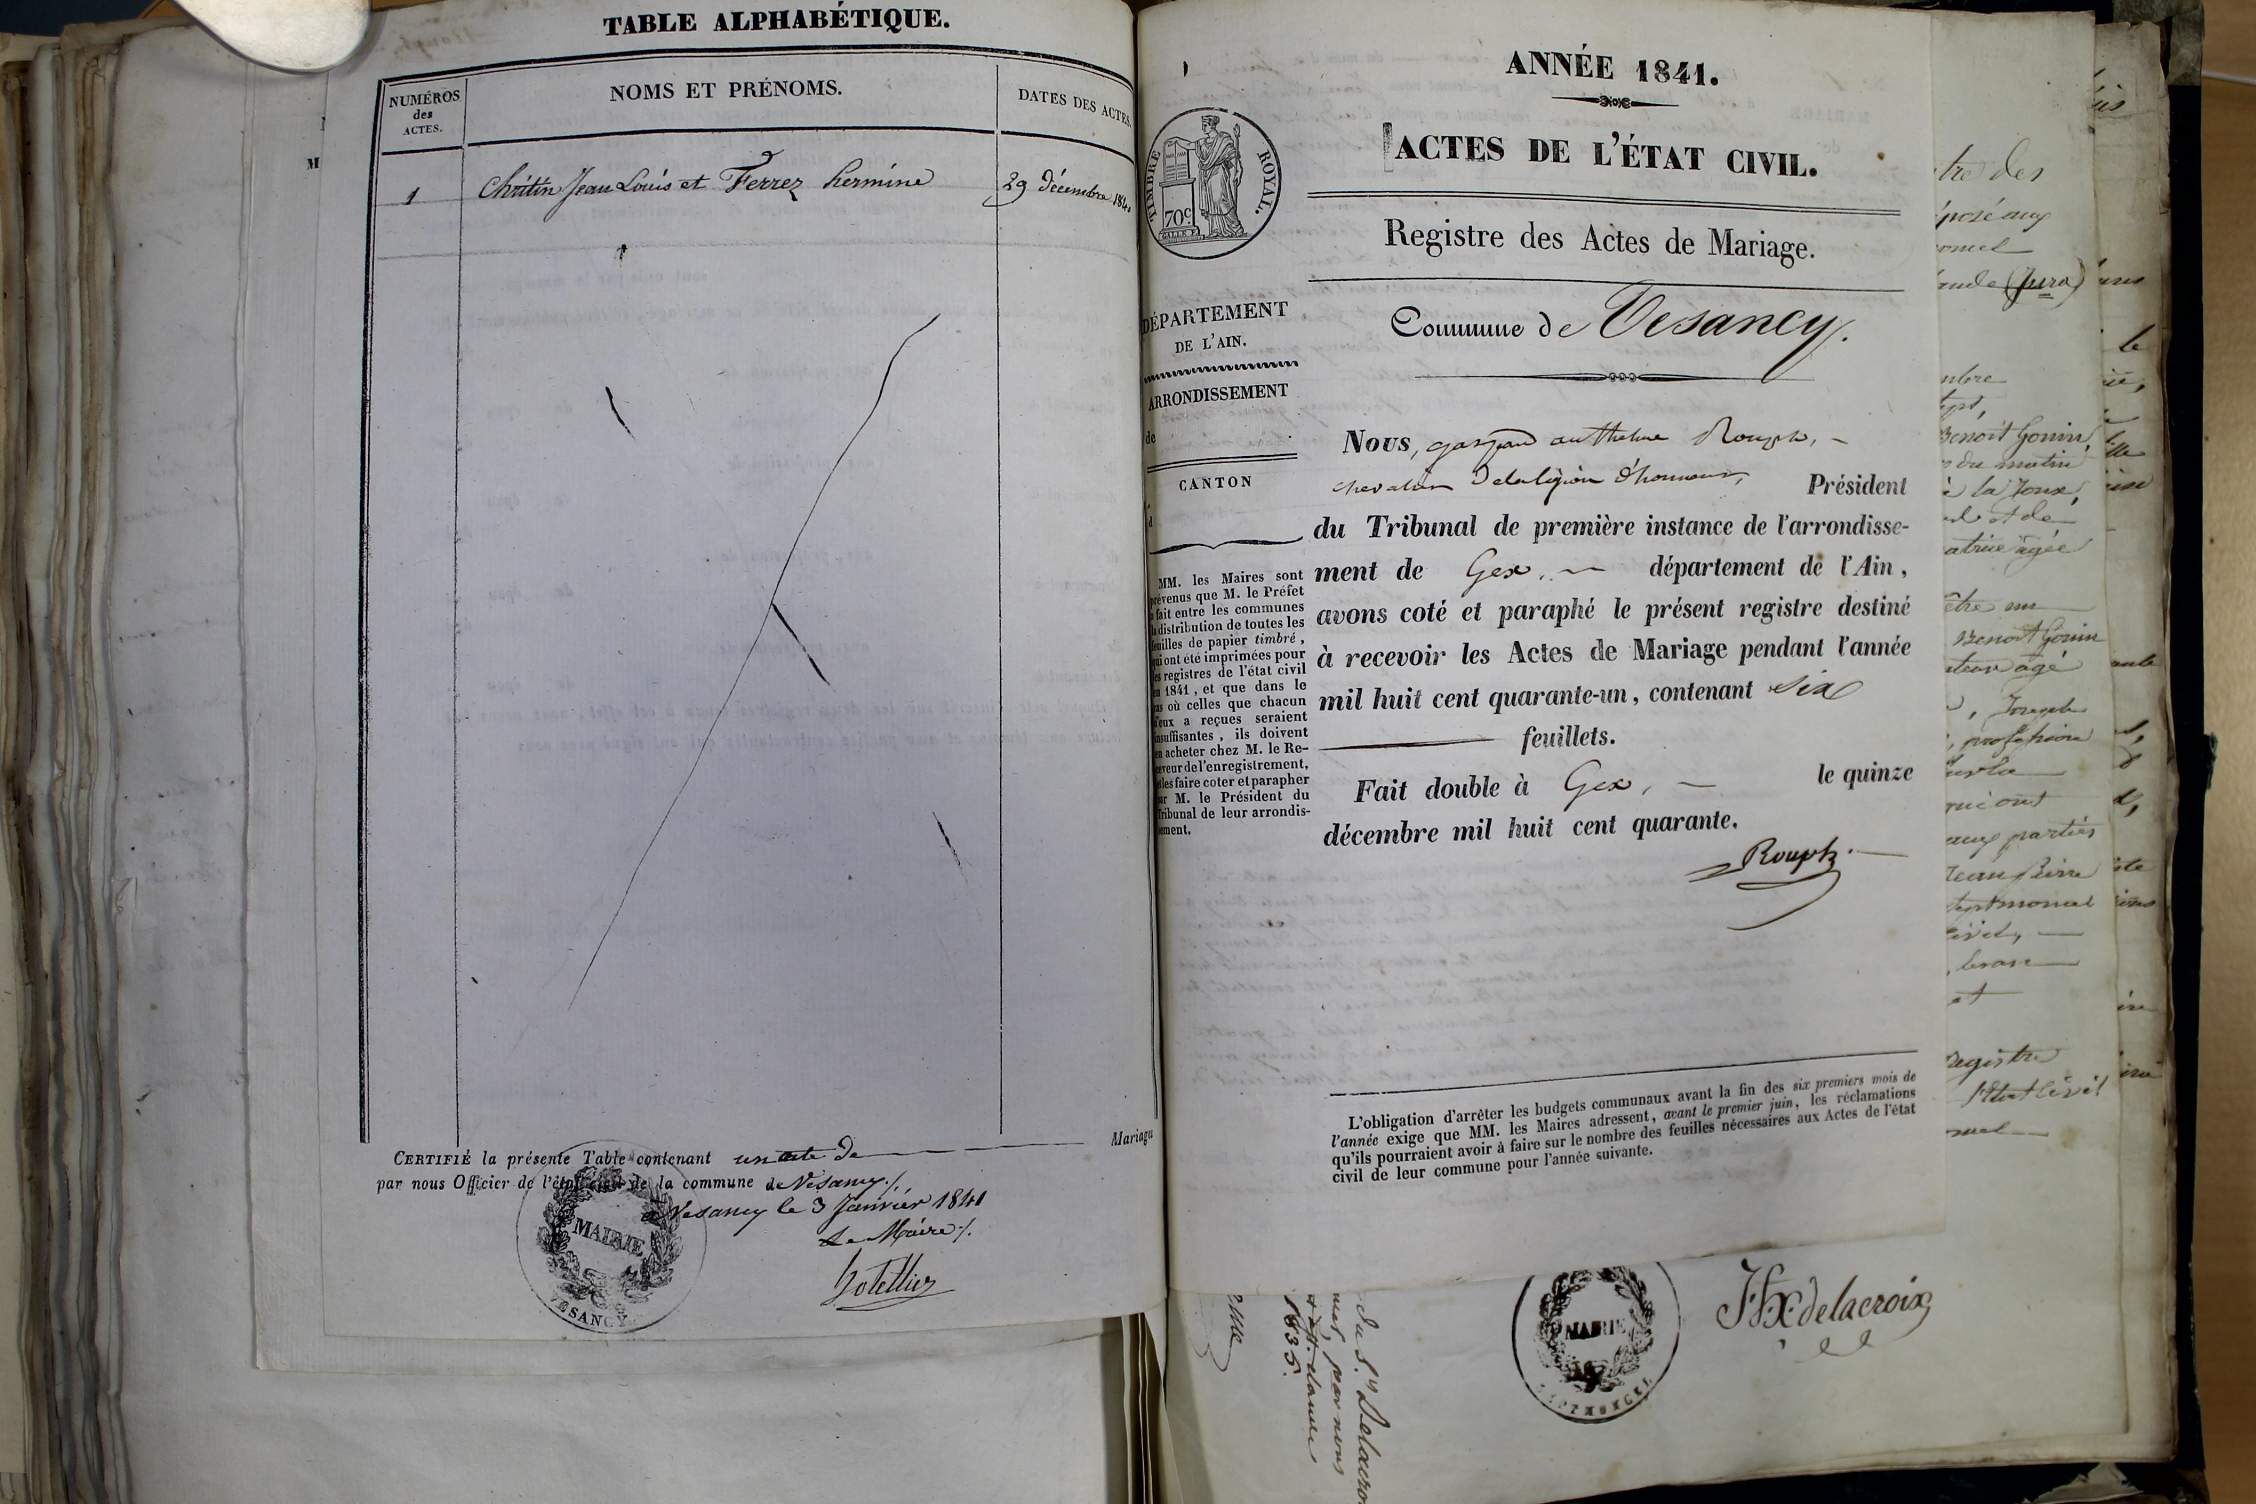 TABLE ALPHABÉTIQUE.
NUMÉROS
des
ACTES.
NOMS ET PRÉNOMS.
DATES DES ACTES.
M
1
Chrétin Jean Louis et Ferrez hermine
29 décembre 184
Mariages
CERTIFIÉ la présente Table contenant un acte de
par nous Officier de l'état civil de la commune de Vesancy./.
a Vesancy le 3 Janvier 1841
Le Maire /.
MAIRIE
VESANCY
ANNÉE 1841.
ACTES DE L'ÉTAT CIVIL.
TIMBRE ROYAL.
70c
Registre des Actes de Mariage.
Commune de Vesancy.
DÉPARTEMENT
DE L'AIN.
ARRONDISSEMENT
de
CANTON
d
MM. les Maires sont
prévenus que M. le Préfet
a fait entre les communes
la distribution de toutes les
feuilles de papier timbré,
qui ont été imprimées pour
les registres de l'état civil
en 1841, et que dans le
cas où celles que chacun
d'eux a reçues seraient
insuffisantes, ils doivent
en acheter chez M. le Re-
ceveur de l'enregistrement,
et les faire coter et parapher
par M. le Président du
Tribunal de leur arrondis-
sement.
Nous, gaspard anthelme Rouph,
chevalier de la légion d'honneur, Président
du Tribunal de première instance de l'arrondisse-
ment de Gex, département de l'Ain,
avons coté et paraphé le présent registre destiné
à recevoir les Actes de Mariage pendant l'année
mil huit cent quarante-un, contenant six
feuillets.
Fait double à Gex, le quinze
décembre mil huit cent quarante.
Rouph.
L'obligation d'arrêter les budgets communaux avant la fin des six premiers mois de
l'année exige que MM. les Maires adressent, avant le premier juin, les réclamations
qu'ils pourraient avoir à faire sur le nombre des feuilles nécessaires aux Actes de l'état
civil de leur commune pour l'année suivante.
tre des
(Jura)
Benoit Gonin,
du matin
à la Joux,
et de
âgée
être un
Benoit Gonin
âgé
, Joseph
, profession
qui ont
aux parties
Jean Pierre
et
Registre
l'Etat civil
MAIRIE
delacroix
du Sr. Delacroix
par nous
1835.